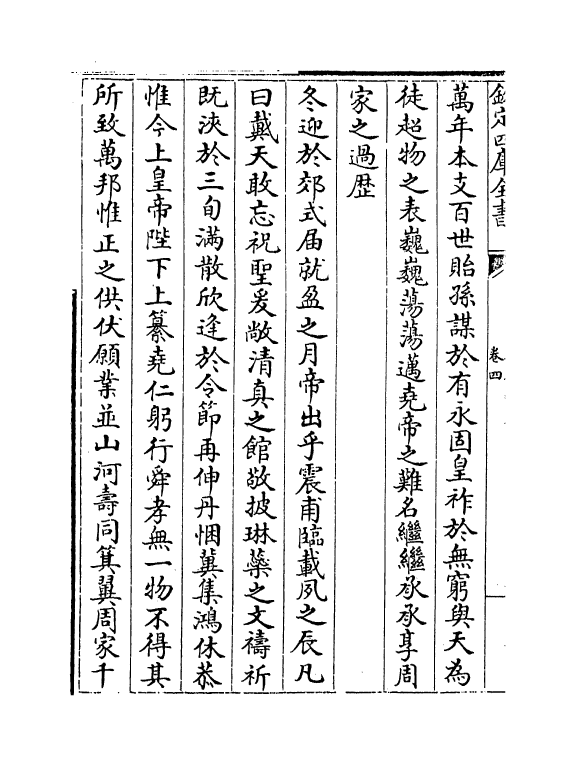 欽定四庫全書
卷四
萬年本支百世貽孫謀於有永固皇祚於無窮與天為
徒超物之表巍巍蕩蕩邁堯帝之難名繼繼承承享周
家之過歴
冬迎於郊式届就盈之月帝出乎震甫臨載夙之辰凡
曰戴天敢忘祝聖爰敞清真之館敬披琳蘂之文禱祈
既浹於三旬滿散欣逢於令節再伸丹悃冀集鴻休恭
惟今上皇帝陛下上纂堯仁躬行舜孝無一物不得其
所致萬邦惟正之供伏願業並山河壽同箕翼周家千